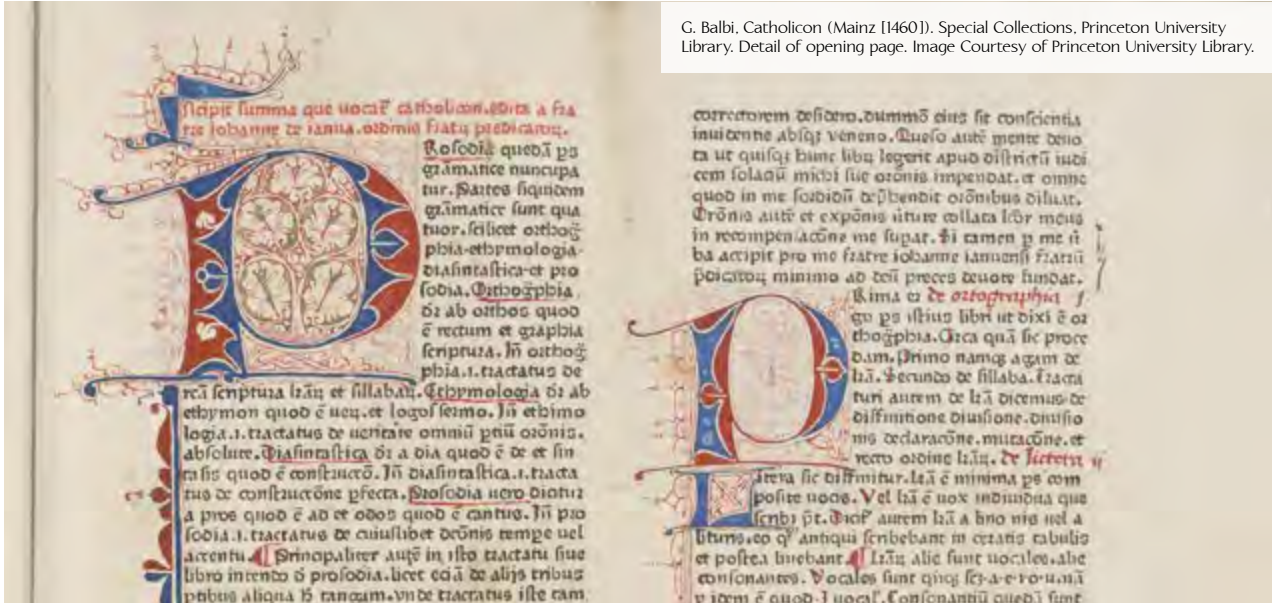 G. Balbi, Catholicon (Mainz [1460]). Special Collections, Princeton University
Library. Detail of opening page. Image Courtesy of Princeton University Library.
ncipit summa que uocat᷑ catholicon. edita a fra
tre iohanne de ianua. ordinis fratꝝ predicatoꝝ.
Rosodia quedā ps
grāmatice nuncupa
tur. Partes siquidem
grāmatice sunt qua
tuor. scilicet orthog̃
phia·ethymologia·
diasintastica·et pro
sodia. Orthog̃phia
dr̄ ab orthos quod
ē rectum et graphia
scriptura. Jn̄ orthog̃
phia .i. tractatus de
rcā scriptura lr̄aꝝ et sillabaꝝ. Ethymologia dr̄ ab
ethymon quod ē ueꝝ. et logos sermo. Jn̄ ethimo
logia .i. tractatus de ueritate omniū ꝑtiū or̄onis.
absolute. Diasintastica dr̄ a dia quod ē de et sin
tasis quod ē construcc̄o. Jn̄ diasintastica .i. tracta
tus de construcc̄one ꝑfecta. Prosodia uero dicitur
a pros quod ē ad et odos quod ē cantus. Jn̄ pro
sodia .i. tractatus de cuiuslibet
accentu. Principaliter autē in isto tractatu siue
libro intendo d̄ prosodia. licet eciā de alijs tribus
ptibus aliqua tangam. vnde tractatus iste tam
correctorem desidero. dummō eius sit conscientia
inuidentie absqꝫ veneno. Queso autē mente deuo
ta ut quisqꝫ hunc libꝝ legerit apud districtū iudi
cem solaciū michi sue or̄onis impendat. et omne
quod in me sordidū dep̄hendit or̄onibus diluat.
Or̄onis autē et expōnis collata lc̄or meus
in recompensac̄one me iuuat. Si tamen me
ba accipit pro me fratre iohanne ianuensi fratrū
p̄dicatoꝝ minimo ad deū preces deuote fundat.
Rima de ortographia
gu ps istius libri ut dixi ē or
thog̃phia. Circa quā sic proce
dam. Primo namqꝫ agam de
lr̄a. Secundo de sillaba. Tracta
turi autem de lr̄a dicemus de
diffinitione diuisione. diuisio
nis declarac̄one. mutac̄one. et
recto ordine lr̄aꝝ. De littera
Jttera sic diffinitur. Lr̄a ē minima ps com
posite uocis. Vel lr̄a ē uox indiuidua que
scribi p̄t. autem lr̄a a lino nis uel a
lituris. eo qꝫ antiqui scribebant in ceratis tabulis
et postea linebant. Lr̄aꝝ alie sunt uocales. alie
consonantes. Vocales sunt quinqꝫ
ꝑ idem ē quod uocal᷑. Consonantiū quedā sunt